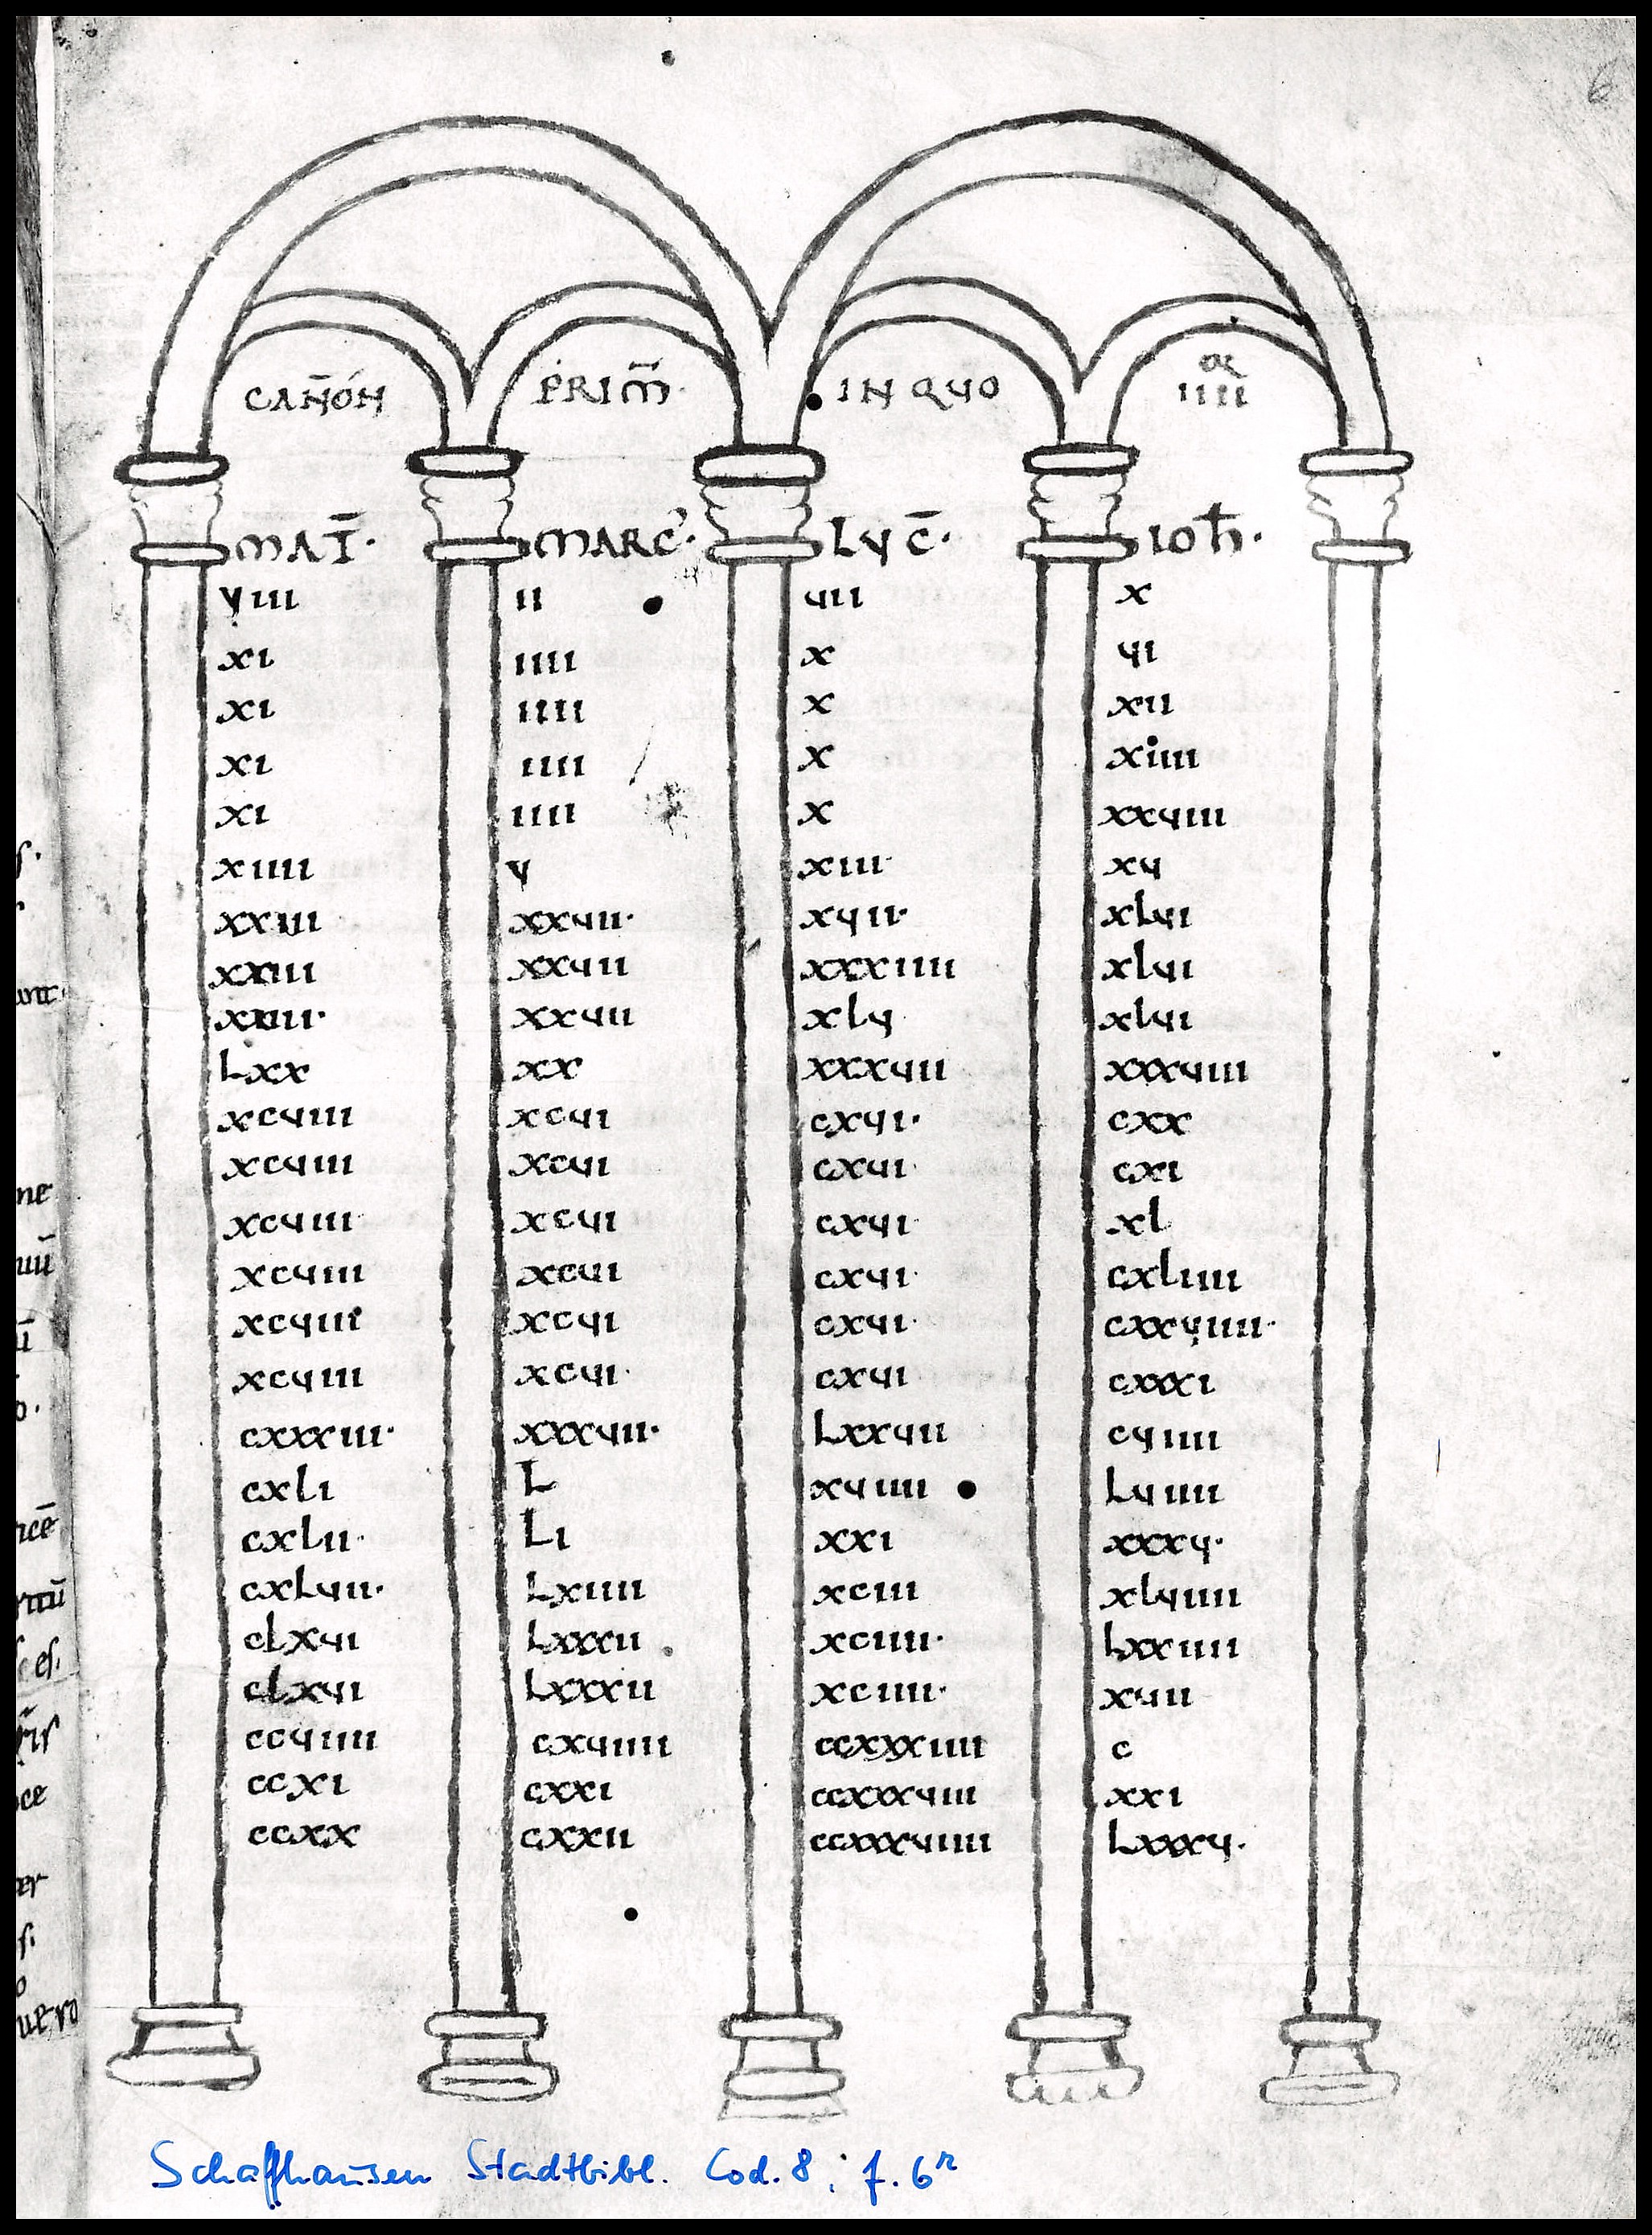 6
or
CAN̄ON PRIM̄ IN QUO IIII
MAT̄· MARC’· LUC̄· IOH̄·
VIII II UII X
XI IIII X UI
XI IIII X XII
XI IIII X XIIII
XI IIII X XXUIII
XIIII V XIII· XU
XXIII XXUII· XUII· XLUI
XXIII XXUII XXXIIII XLUI
XXIII· XXUII XLU XLUI
LXX XX XXXUII XXXUIII
XCUIII XCUI CXUI· CXX
XCUIII XCUI CXUI· CXI
XCUIII XCUI CXUI· XL
XCUIII XCUI CXUI· CXLIIII
XCUIII XCUI CXUI· CXXUIIII·
XCUIII XCUI· CXUI CXXXI
CXXXIII· XXXUII· LXXUII CUIIII
CXLI L XUIIII LUIIII
CXLII· LI XXI XXXU·
CXLUII· LXIIII XCIII XLUIIII
CLXUI LXXXII XCIIII· LXXIIII
CLXUI LXXXII XCIIII· XUII
CCUIIII CXUIIII CCXXXIIII C
CCXI CXXI CCXXXUIII XXI
CCXX CXXII CCXXXUIIII LXXXU·
ne
ce
uero
Schaffhausen Stadtbibl. Cod. 8, f. 6r